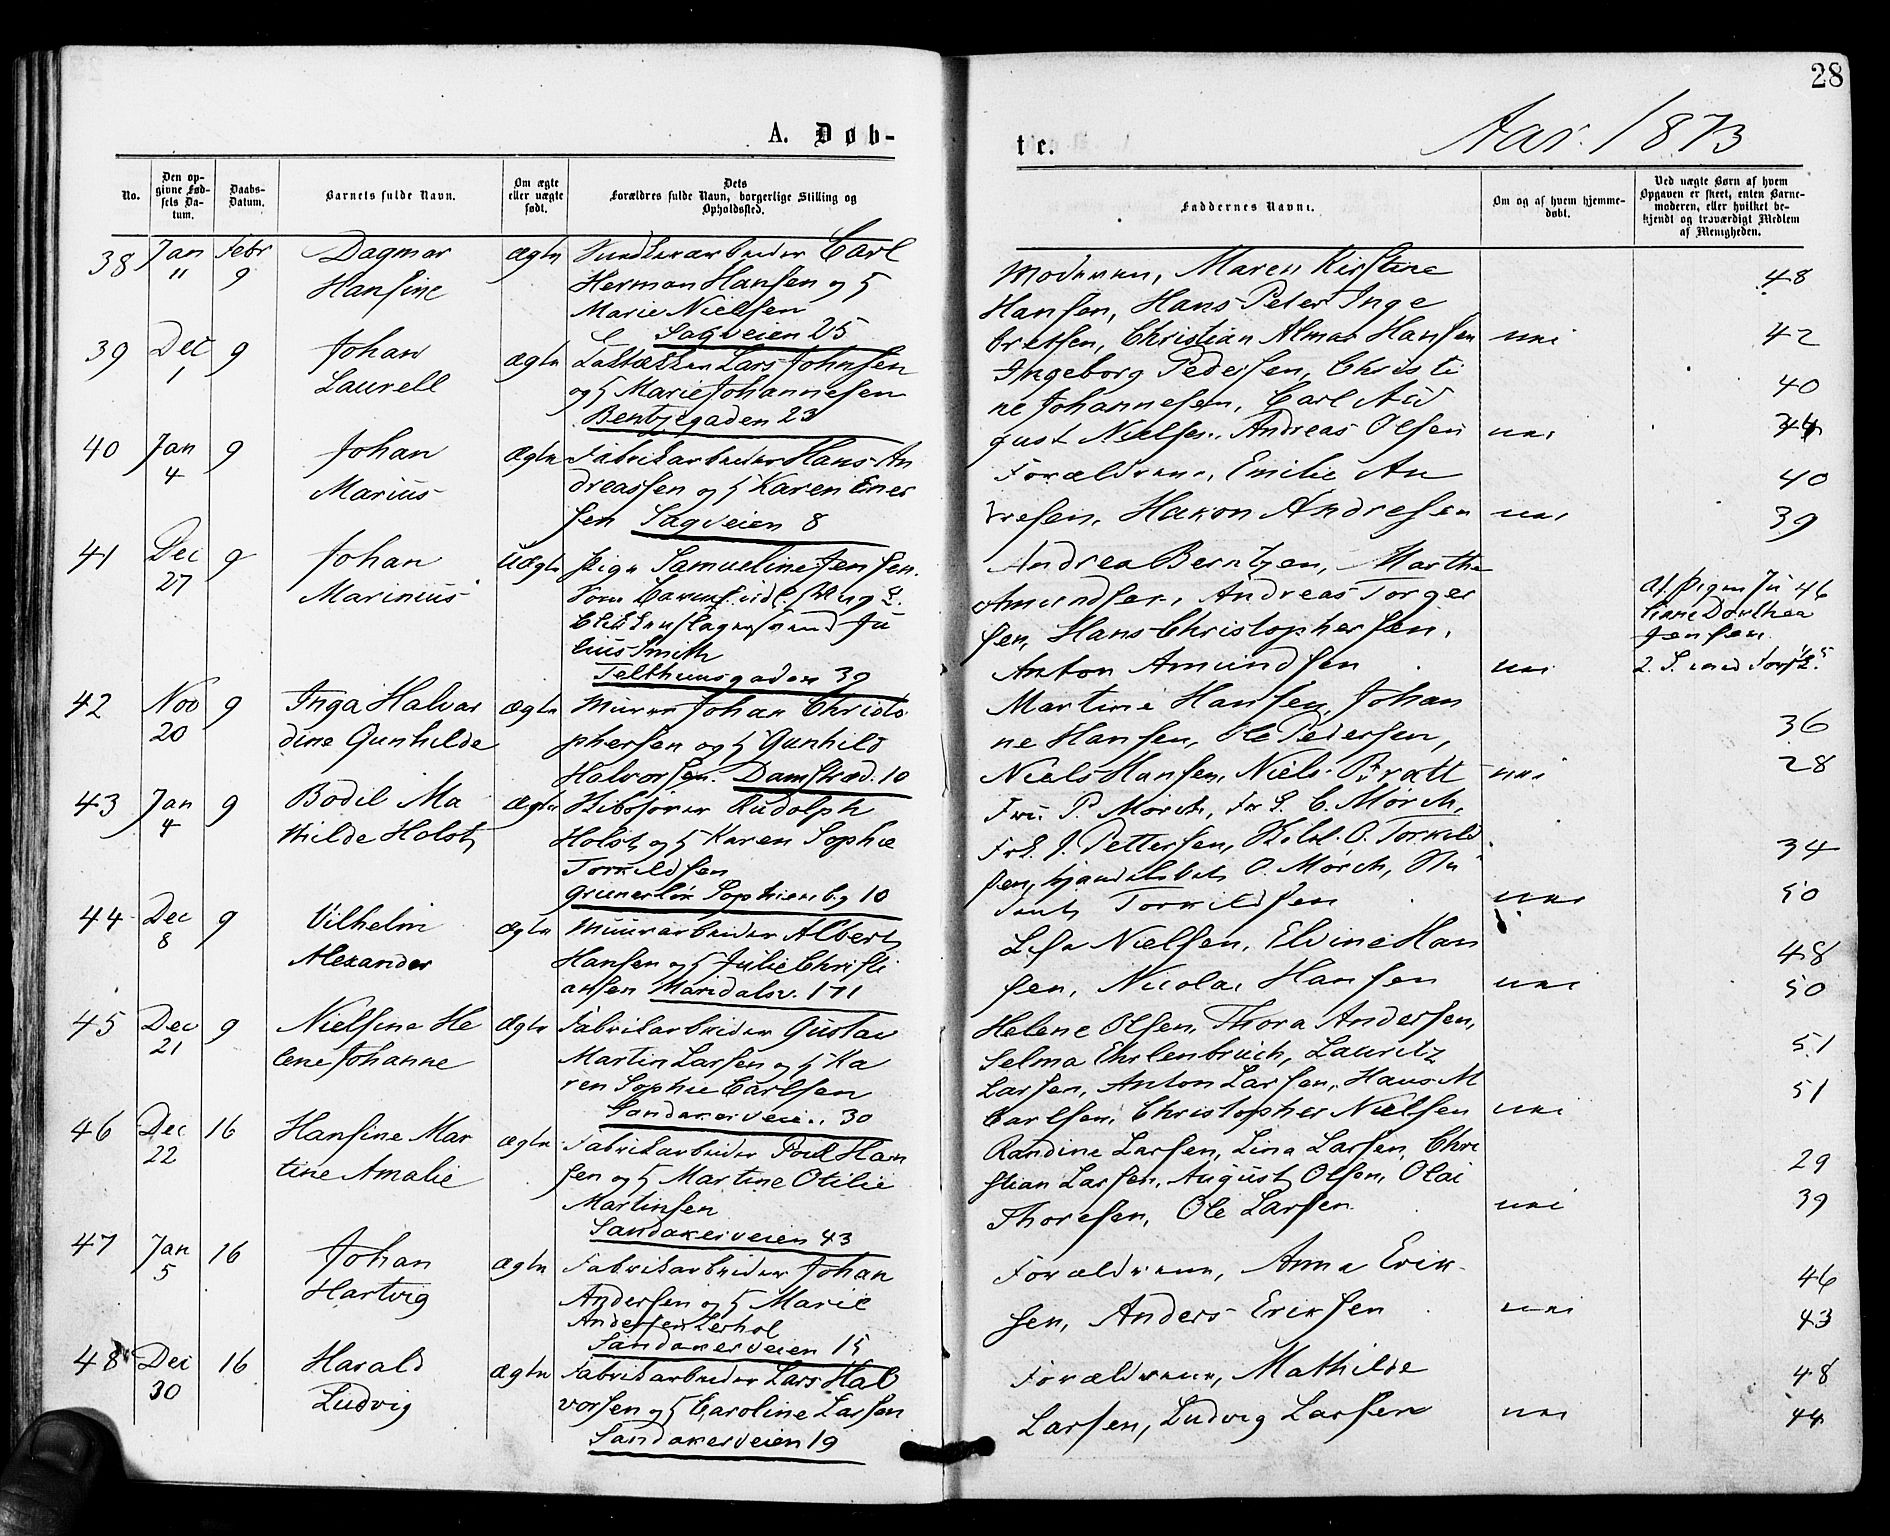 28
A. Døb-
te.
Aar. 1873
No.
Den opgivne Fødsels Datum.
Daabs-Datum.
Barnets fulde Navn.
Om ægte eller uægte født.
Dets Forældres fulde Navn, borgerlige Stilling og Opholdssted.
38 Jan 11 Febr 9
Dagmar
Hansine
Ægte
Carl
Herman Hansen og H
Marie Nielsen
Sagveien 25
39 Dec 1 9
Johan
Laurell
ægte
Lars Johnsen
og H Marie Johannesen
Bentsegaden 23
40 Jan 4 9
Johan
Marius
Ægte
Fabrikarbeider Hans An
dreassen og H Karen Ener
sen Sagveien 8
41 Dec 27 9
Johan
Marinius
Uægte
Pige Samueline Jensen.
Ju
lius Smith
Telthuusgaden 39
42 Nov 20 9
Inga Halvar
dine Gunhilde
ægte
Murer Johan Christo
phersen og H Gunhild
Halvorsen. Damstræd. 10
43 Jan 4 9
Bodil Ma
thilde Holst
Ægte
Skibsfører Rudolph
Holst og H Karen Sophie
Torkildsen
Grunerløk Sophienbg 10
44 Dec 8 9
Vilhelm
Alexander
Ægte
Muurarbeider Albert
Hansen og H Julie Christi
ansen Maridalsv. 171
45 Dec 21 9
Nielsine He
lene Johanne
Ægte
Fabrikarbeider Gustav
Martin Larsen og H Ka
ren Sophie Carlsen
Sandakerveien 30
46 Dec 22 16
Hansine Mar
tine Amalie
Ægte
Fabrikarbeider Poul Han
sen og H Martine Otilie
Martinsen
Sandakerveien 43
47 Jan 5 16
Johan
Hartvig
Ægte
Fabrikarbeider Johan
Andersen og H Marie
Andersen Lerhol
Sandakerveien 15
48 Dec 30 16
Harald
Ludvig
Ægte
Fabrikarbeider Lars Hal
vorsen og H Caroline Larsen
Sandakerveien 19
Faddernes Navne.
Om og af hvem hjemmedøbt.
Ved uægte Børn af hvem Opgaven er skeet, enten Barnemoderen, eller hvilket bekjendt og troværdigt Medlem af Menigheden.
Moderen, Maren Kirstine 48
Hansen, Hans Peter Inge
bretsen, Christian Almar Hansen nei 42
Ingeborg Pedersen, Christi
ne Johannesen, Carl Au 40
gust Nielsen, Andreas Olsen nei 44
Forældrene, Emilie An 40
dresen, Hakon Andresen nei 39
Andrea Berntzen, Marthe
Amundsen, Andreas Torger
sen, Hans Christophersen,
Anton Amundsen nei
Af Pigen Ju 46
liane Dorthea
Jensen
Martine Hansen, Johan
ne Hansen, Ole Pedersen, 36
Niels Hansen, Niels Bratt nei 28
Fru P. Mørch, Frk. C. Mørch,
Frk. J. Pettersen, O. Torkild 34
sen, O. Mørch, Stu
dent Torkildsen nei 50
Nielsen, Elvine Han 48
sen, Nicolai Hansen nei 50
Helene Olsen, Thora Andersen,
Selma Ehrlenbruch, Lauritz 51
Larsen, Anton Larsen, Hans M 51
Carlsen, Christopher Nielsen nei
Randine Larsen, Lina Larsen, Chri 29
stian Larsen, August Olsen, Olai
Thoresen, Ole Larsen nei 39
Forældrene, Anna Erik 46
sen, Anders Eriksen nei 43
Forældrene, Mathilde 48
Larsen, Ludvig Larsen nei 44